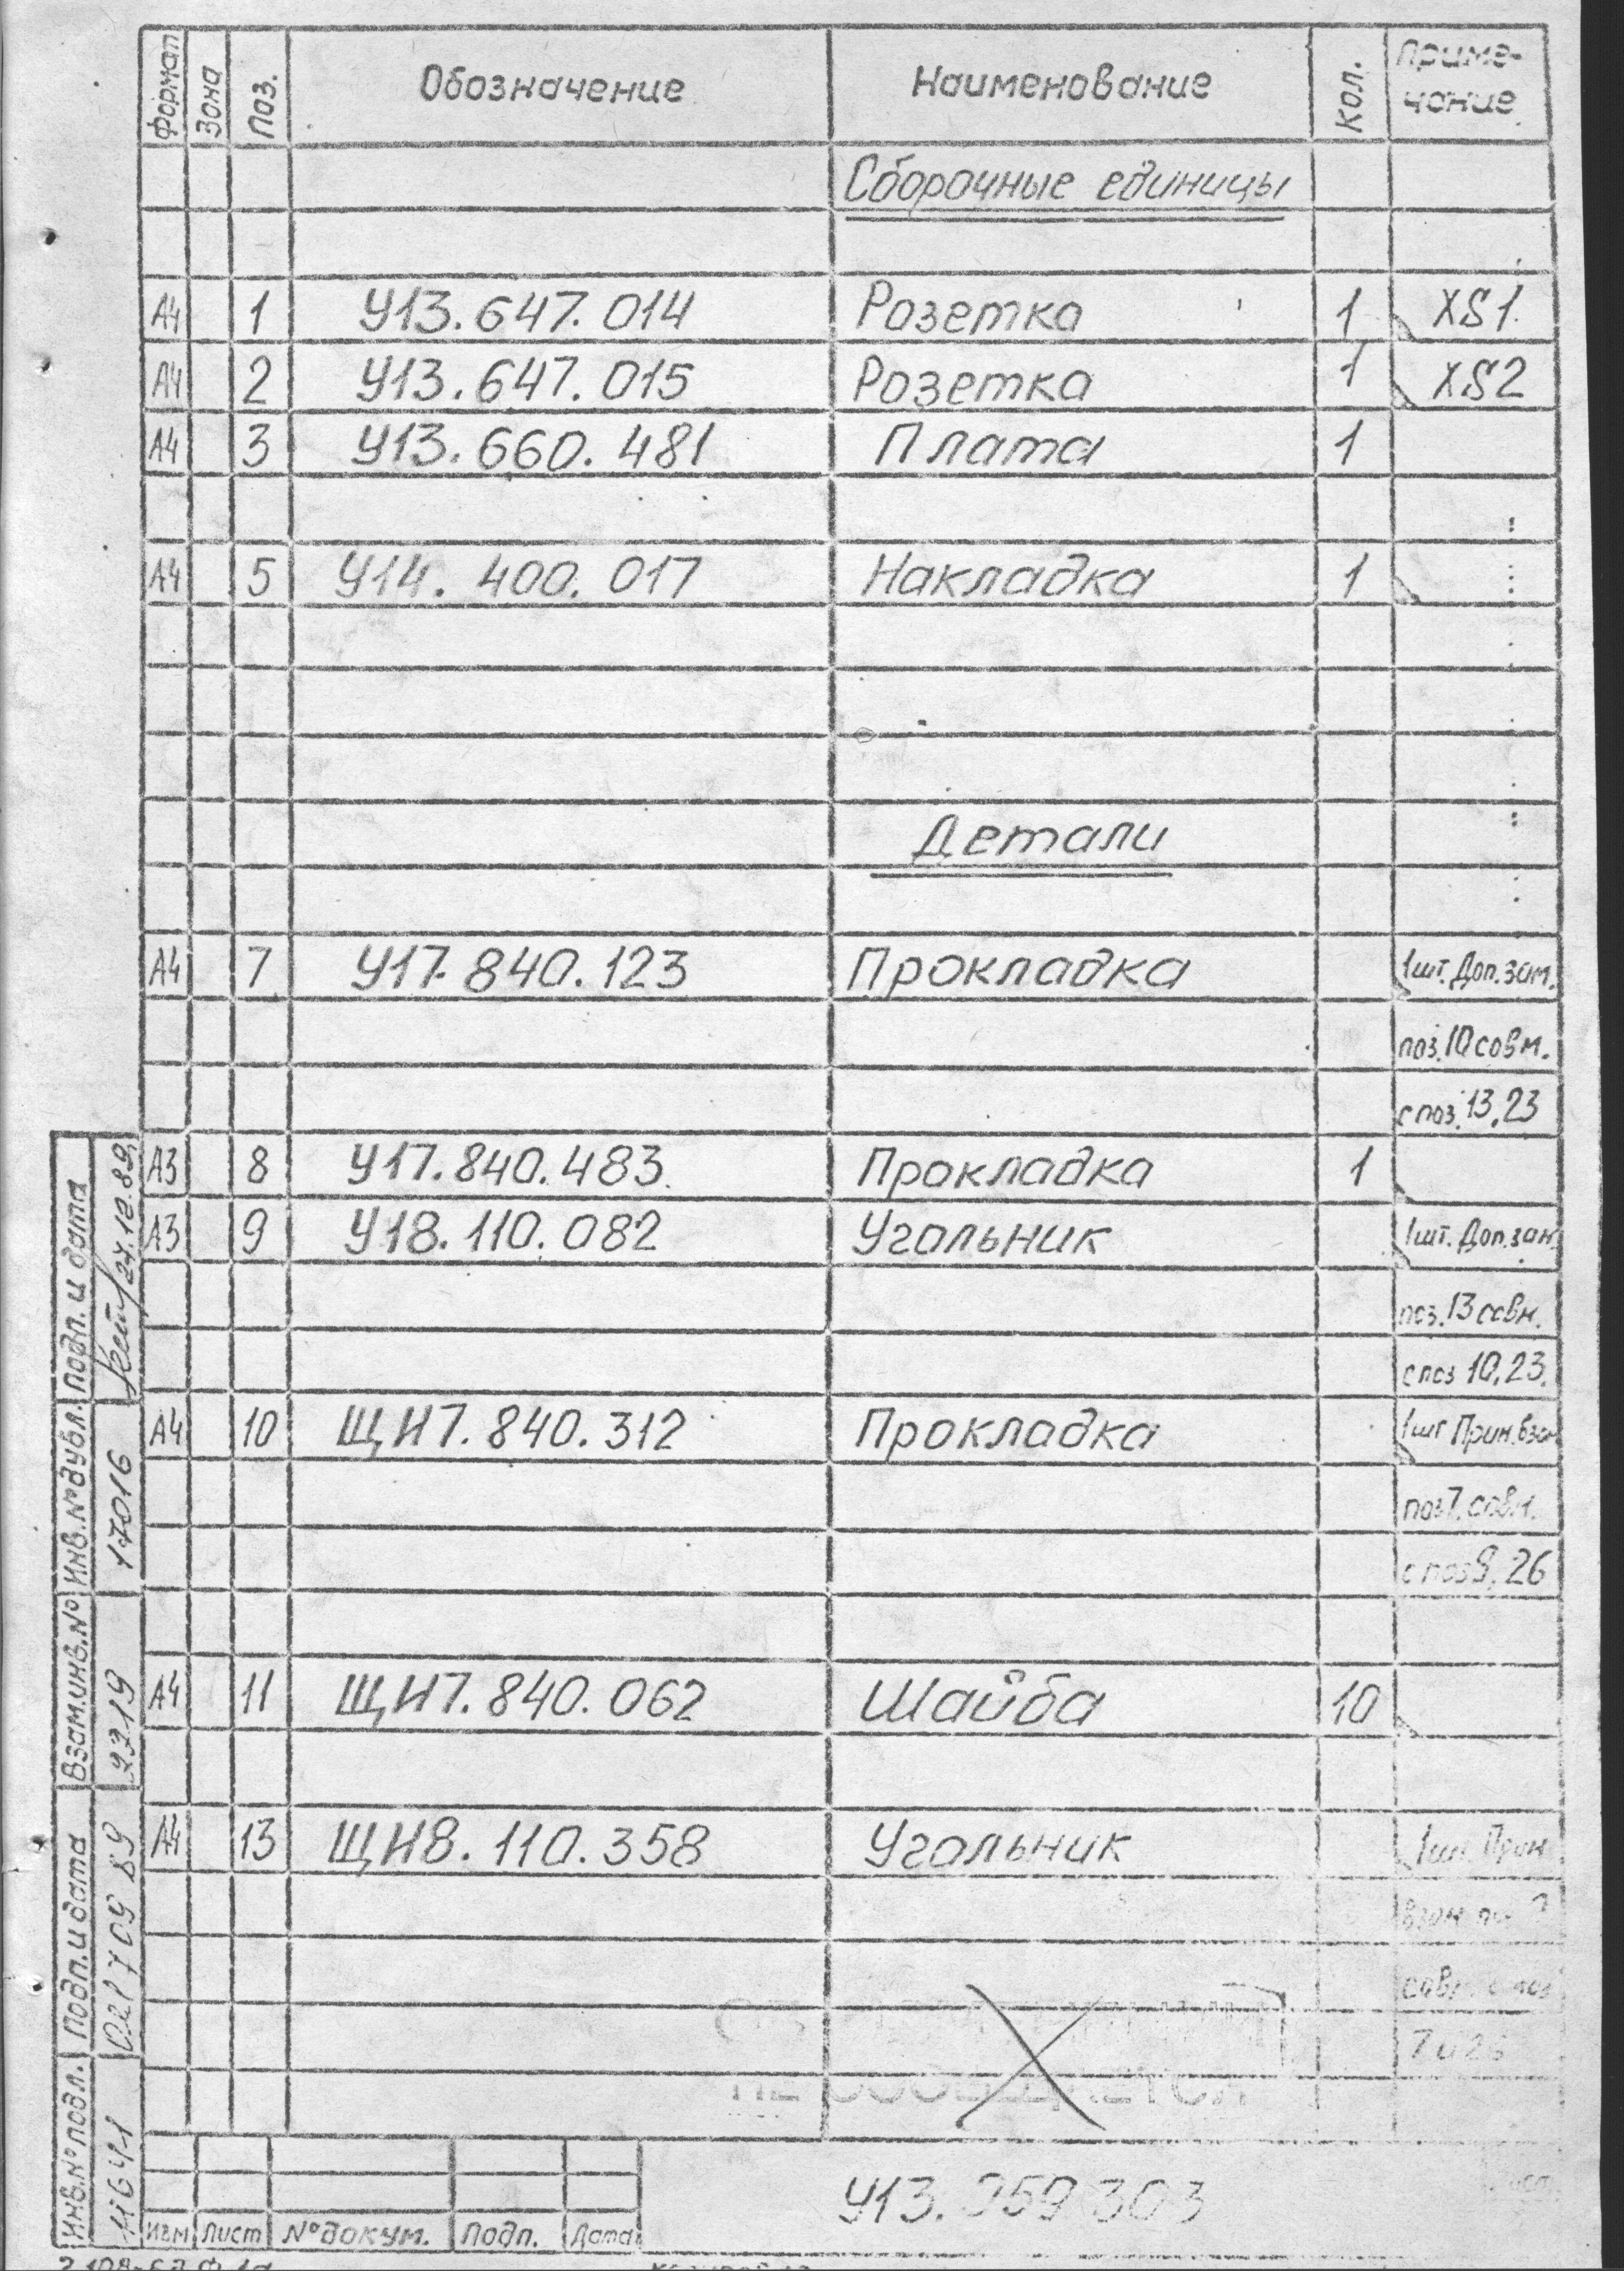 Формат Зона Поз. Обозначение Наименование Кол. Приме-
чание
Сборочные единицы
А4 1 УІ3.647.014 Розетка 1 XS1
А4 2 УІ3.647.015 Розетка 1 XS2
А4 3 УІ3.660.481 Плата 1
А4 5 УІ4.400.017 Накладка 1
Детали
А4 7 УІ7.840.123 Прокладка 1шт. Доп.зам.
поз.10 совм.
с поз.13,23
А3 8 УІ7.840.483 Прокладка 1
А3 9 УІ8.110.082 Угольник 1шт. Доп.зам.
поз.13 совм.
с поз 10,23.
А4 10 ЩИ7.840.312 Прокладка 1шт Прим.взам
поз7.совм.
с поз9,26
А4 11 ЩИ7.840.062 Шайба 10
А4 13 ЩИ8.110.358 Угольник 1шт. Прим
взам поз
совм с поз
7 и 26
НЕ СООБЩАЕТСЯ
УІ3.059.303
Изм Лист № докум. Подп. Дата
Подп. и дата 24.12.89
Инв.№ дубл. 17016
Взам.инв.№ 2219
Подп. и дата 7 09 89
Инв.№ подл.
2.108-68 Ф.1а